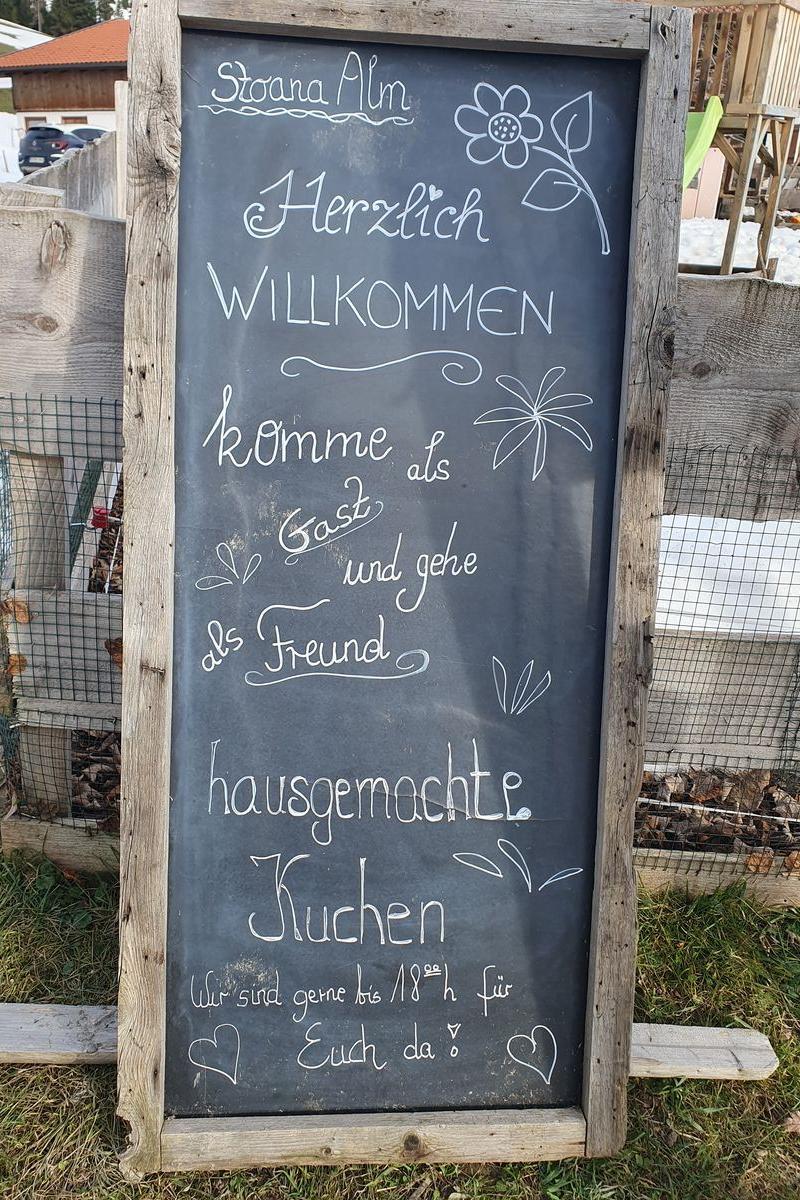 Stoana Alm
Herzlich
WILLKOMMEN
komme als
Gast
und gehe
als Freund
hausgemachte
Kuchen
Wir sind gerne bis 18⁰⁰ h für
Euch da!